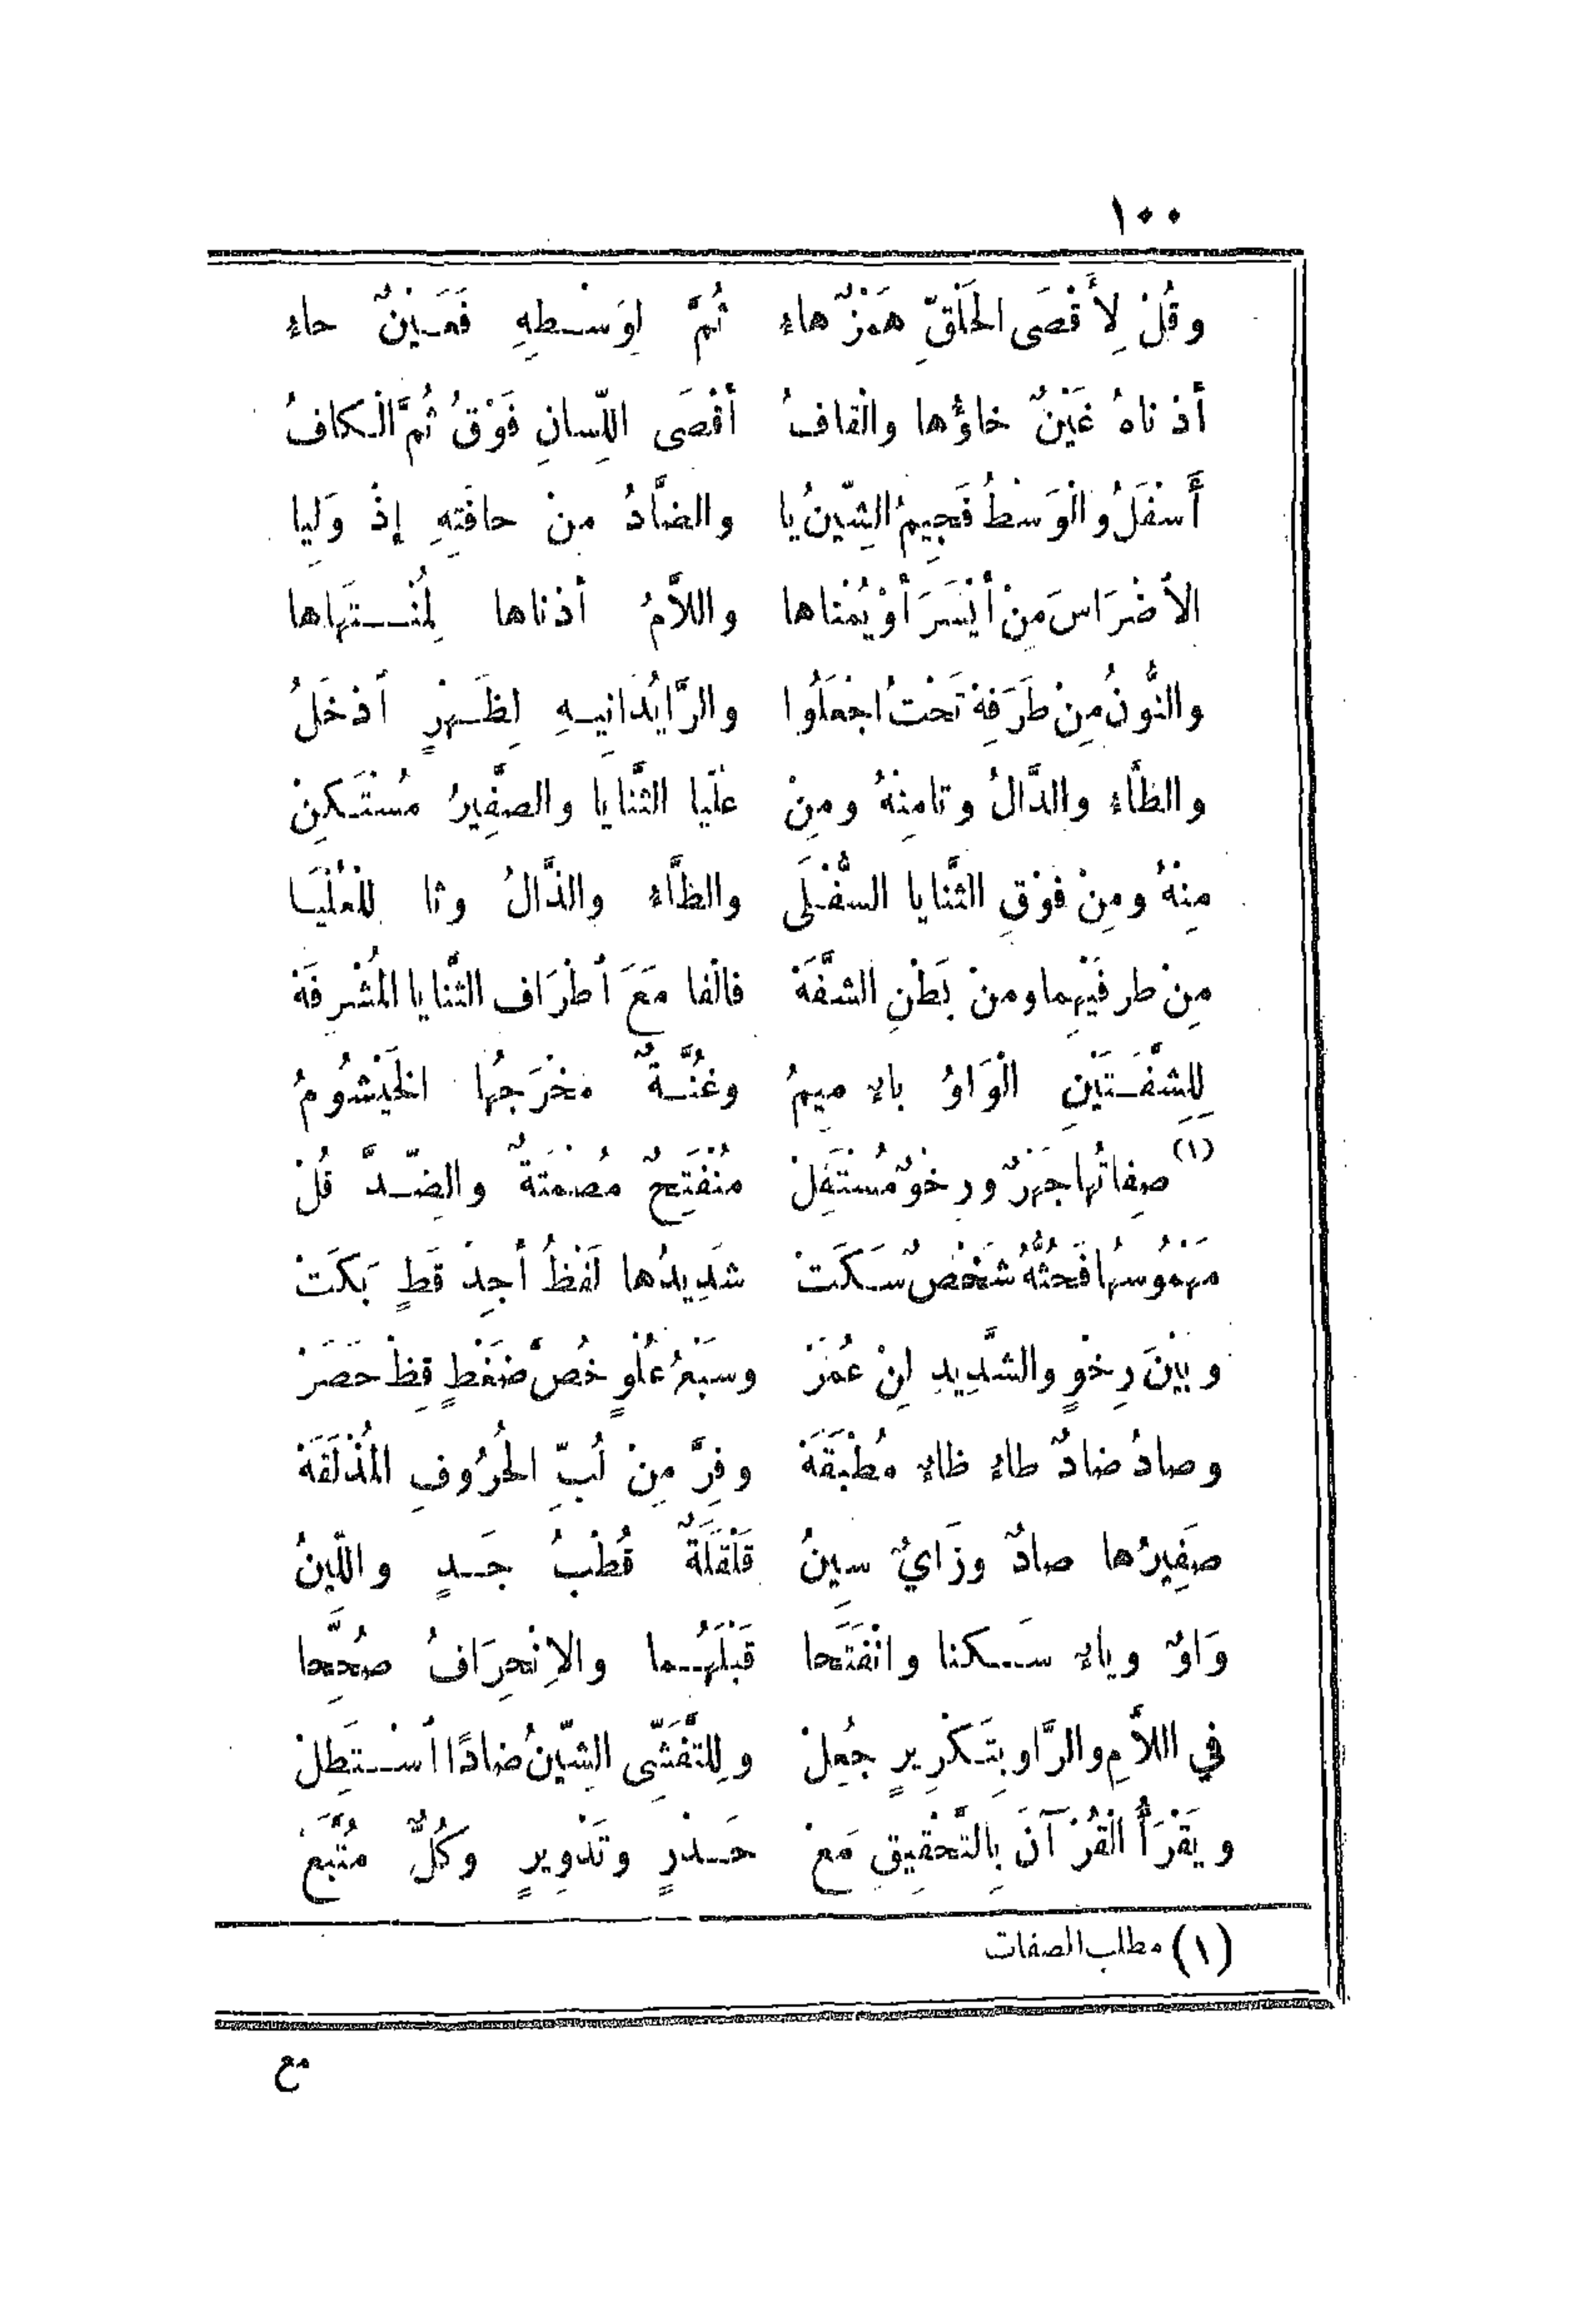 ١٠٠
وقُلْ لِأَقْصَى الحَلْقِ هَمْزٌ هاءُ ثُمَّ لِوَسْطِهِ فَعَيْنٌ حاءُ
أدْناهُ غَيْنٌ خاؤُها والْقافُ أقْصَى اللِّسانِ فَوْقُ ثُمَّ الْكافُ
أَسْفَلُ والْوَسْطُ فَجِيمُ الشِّينُ يا والضَّادُ منْ حافَتِهِ إذْ وَلِيا
الأضْرَاسَ مِنْ أيْسَرَ أوْ يُمْناها واللاَّمُ أدْناها لِمُنْتَهاها
والنُّونُ مِنْ طَرَفِهِ تَحْتُ اجْعَلُوا والرَّا يُدَانِيهِ لِظَهْرٍ أدْخَلُ
والطَّاءُ والدَّالُ وتا مِنْهُ ومِنْ عُلْيا الثَّنايا والصَّفِيرُ مُسْتَكِنْ
مِنْهُ ومِنْ فوْقِ الثَّنايا السُّفْلَى والظَّاءُ والذَّالُ وثا لِلْعُلْيَا
مِنْ طرفَيْهِما ومنْ بَطْنِ الشَّفَهْ فالْفا مَعَ أطْرَافِ الثَّنايا المُشْرِفَهْ
لِلشَّفَتَيْنِ الْوَاوُ باءٌ مِيمُ وغُنَّةٌ مخْرَجُها الخَيْشُومُ
(١) صِفاتُها جَهْرٌ ورِخْوٌ مُسْتَفِلْ مُنْفَتِحٌ مُصْمَتَةٌ والضِّدَّ قُلْ
مَهْمُوسُها فَحَثَّهُ شَخْصٌ سَكَتْ شَدِيدُها لَفْظُ أجِدْ قَطٍ بَكَتْ
وبيْنَ رِخْوٍ والشَّدِيدِ لِنْ عُمَرْ وسَبْعُ عُلْوٍ خُصَّ ضَغْطٍ قِظْ حَصَرْ
وصادُ ضادٌ طاءُ ظاءٌ مُطْبَقَهْ وفِرَّ مِنْ لُبِّ الحُرُوفِ المُذْلَقَهْ
صَفِيرُها صادٌ وزَايٌ سِينُ قَلْقَلَةٌ قُطْبُ جَدٍ واللِّينُ
وَاوٌ وياءٌ سَكنا وانْفَتَحا قَبْلَهُما والاِنْحِرَافُ صُحِّحا
في اللاَّمِ والرَّا وبِتَكْرِيرٍ جُعِلْ ولِلتَّفَشِّى الشِّينُ ضادًا اُسْتَطِلْ
ويَقْرَأُ الْقُرْآنَ بِالتَّحْقِيقِ مَعْ حَدْرٍ وتَدْوِيرٍ وَكُلٌّ مُتَّبَعْ
(١) مطلب الصفات
مع